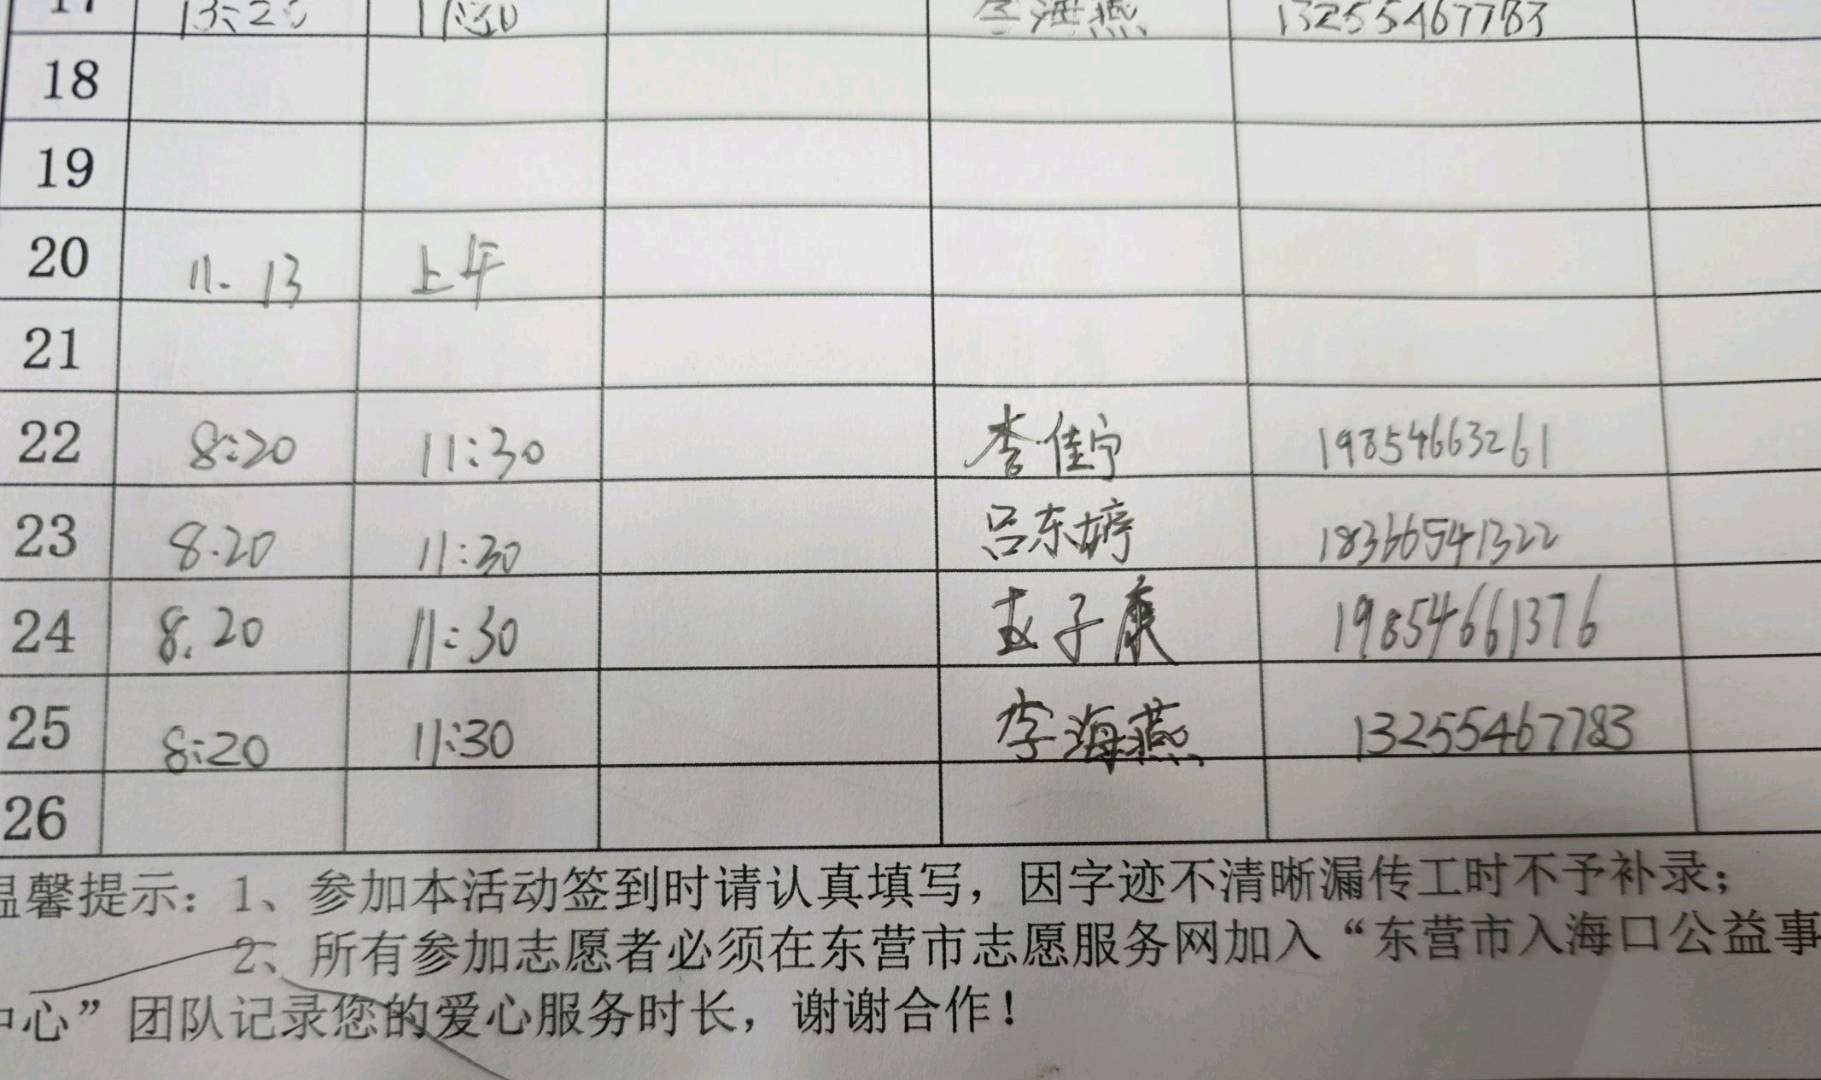 17 13:20 李海燕 13255467783
18
19
20 11.13 上午
21
22 8:20 11:30 李佳宁 19854663261
23 8.20 11:30 吕东婷 18366541322
24 8.20 11:30 赵子康 19854661376
25 8:20 11:30 李海燕 13255467783
26
温馨提示：1、参加本活动签到时请认真填写，因字迹不清晰漏传工时不予补录；
2、所有参加志愿者必须在东营市志愿服务网加入“东营市入海口公益事
中心”团队记录您的爱心服务时长，谢谢合作！